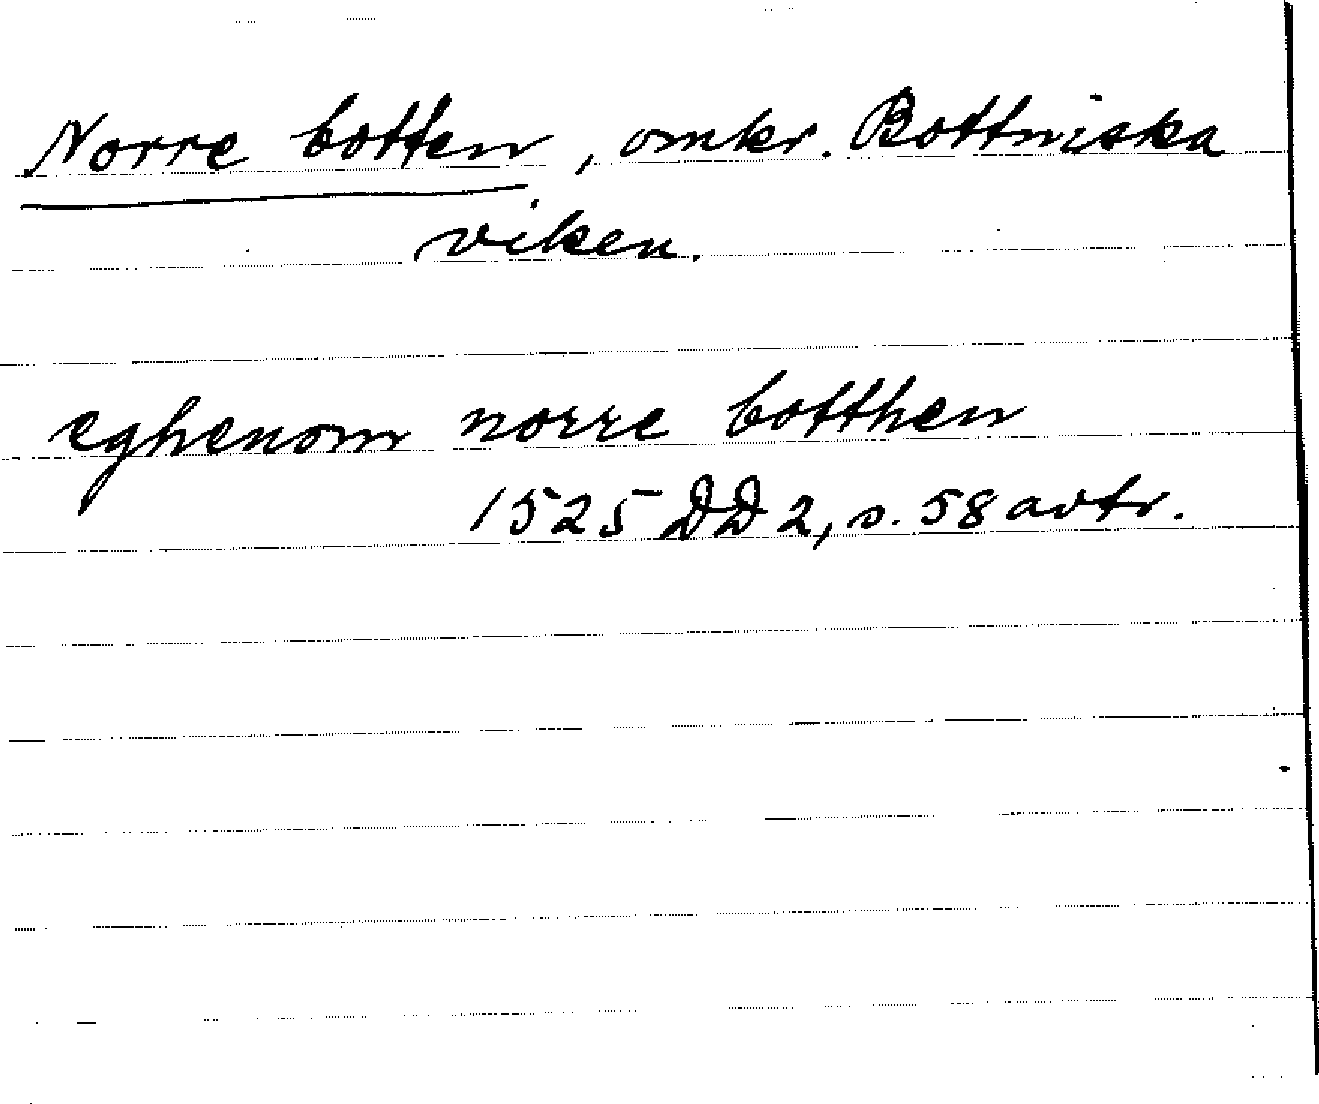 Norre botten, omkr. Bottniska
viken.
eghenom norre botthen
1525 DD 2, s. 58 avtr.